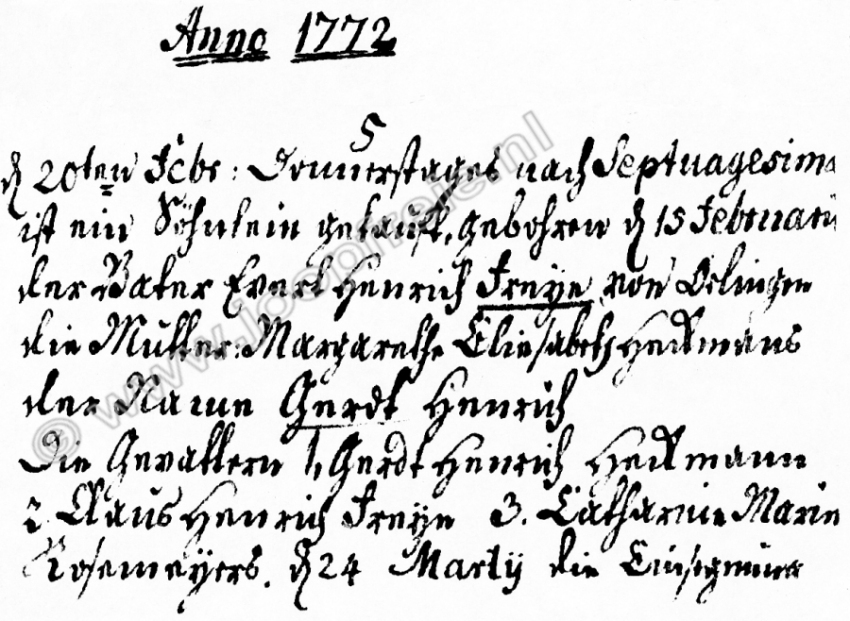 Anno 1772
5
d 20ten Febr: Donnerstages nach Septuagesima
ist ein Söhnlein getaufft, gebohren d 15 Februarii
der Vater Evert Henrich Freye von Oelingen
die Mutter: Margarethe Elisabeth Heckmans
der Name Gerdt Henrich
Die Gevattern 1, Gerdt Henrich Heckmann
2 Claus Henrich Freye 3. Catharine Marie
Rosemeyers. d 24 Martij die
© www.joopfreije.nl